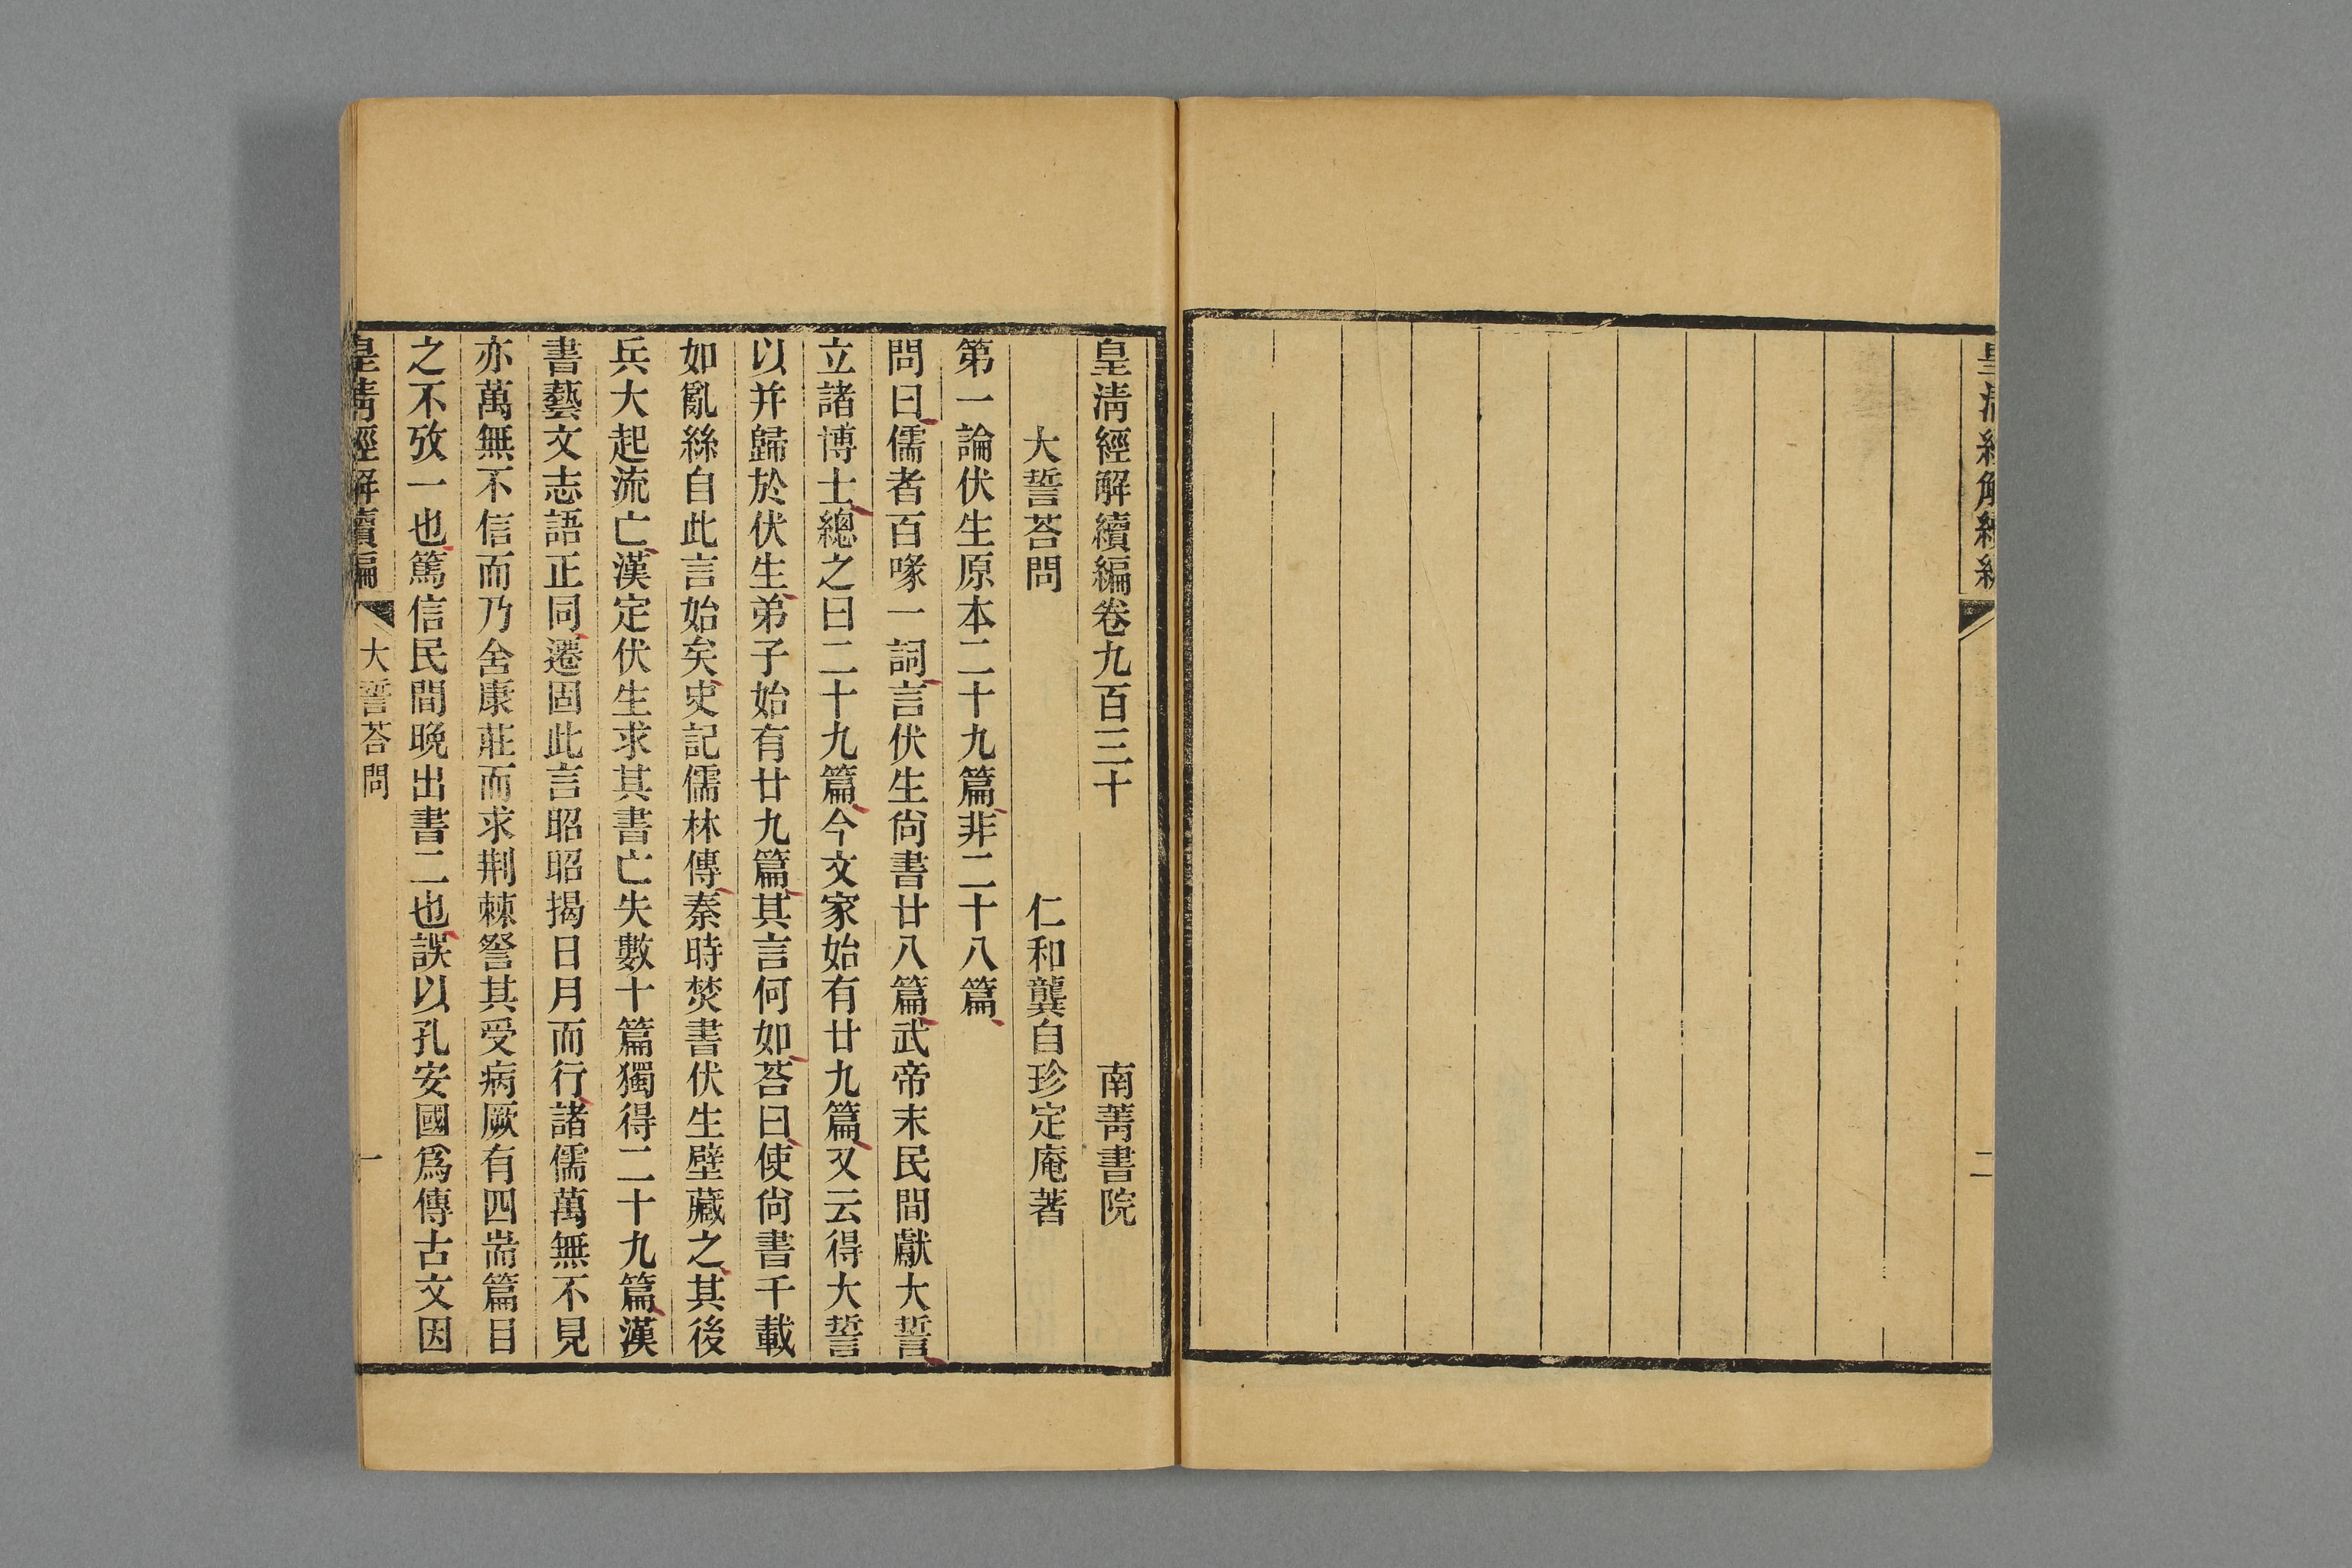 皇清經解續編
二
皇清經解續編卷九百三十 南菁書院
大誓荅問 仁和龔自珍定庵著
第一論伏生原本二十九篇非二十八篇
問曰儒者百喙一詞言伏生尙書廿八篇武帝末民間獻大誓
立諸博士總之曰二十九篇今文家始有廿九篇又云得大誓
以并歸於伏生弟子始有廿九篇其言何如荅曰使尙書千載
如亂絲自此言始矣史記儒林傳秦時焚書伏生壁藏之其後
兵大起流亡漢定伏生求其書亡失數十篇獨得二十九篇漢
書藝文志語正同遷固此言昭昭揭日月而行諸儒萬無不見
亦萬無不信而乃舍康莊而求荆棘詧其受病厥有四耑篇目
之不攷一也篤信民間晚出書二也誤以孔安國爲傳古文因
皇清經解續編 大誓荅問 一